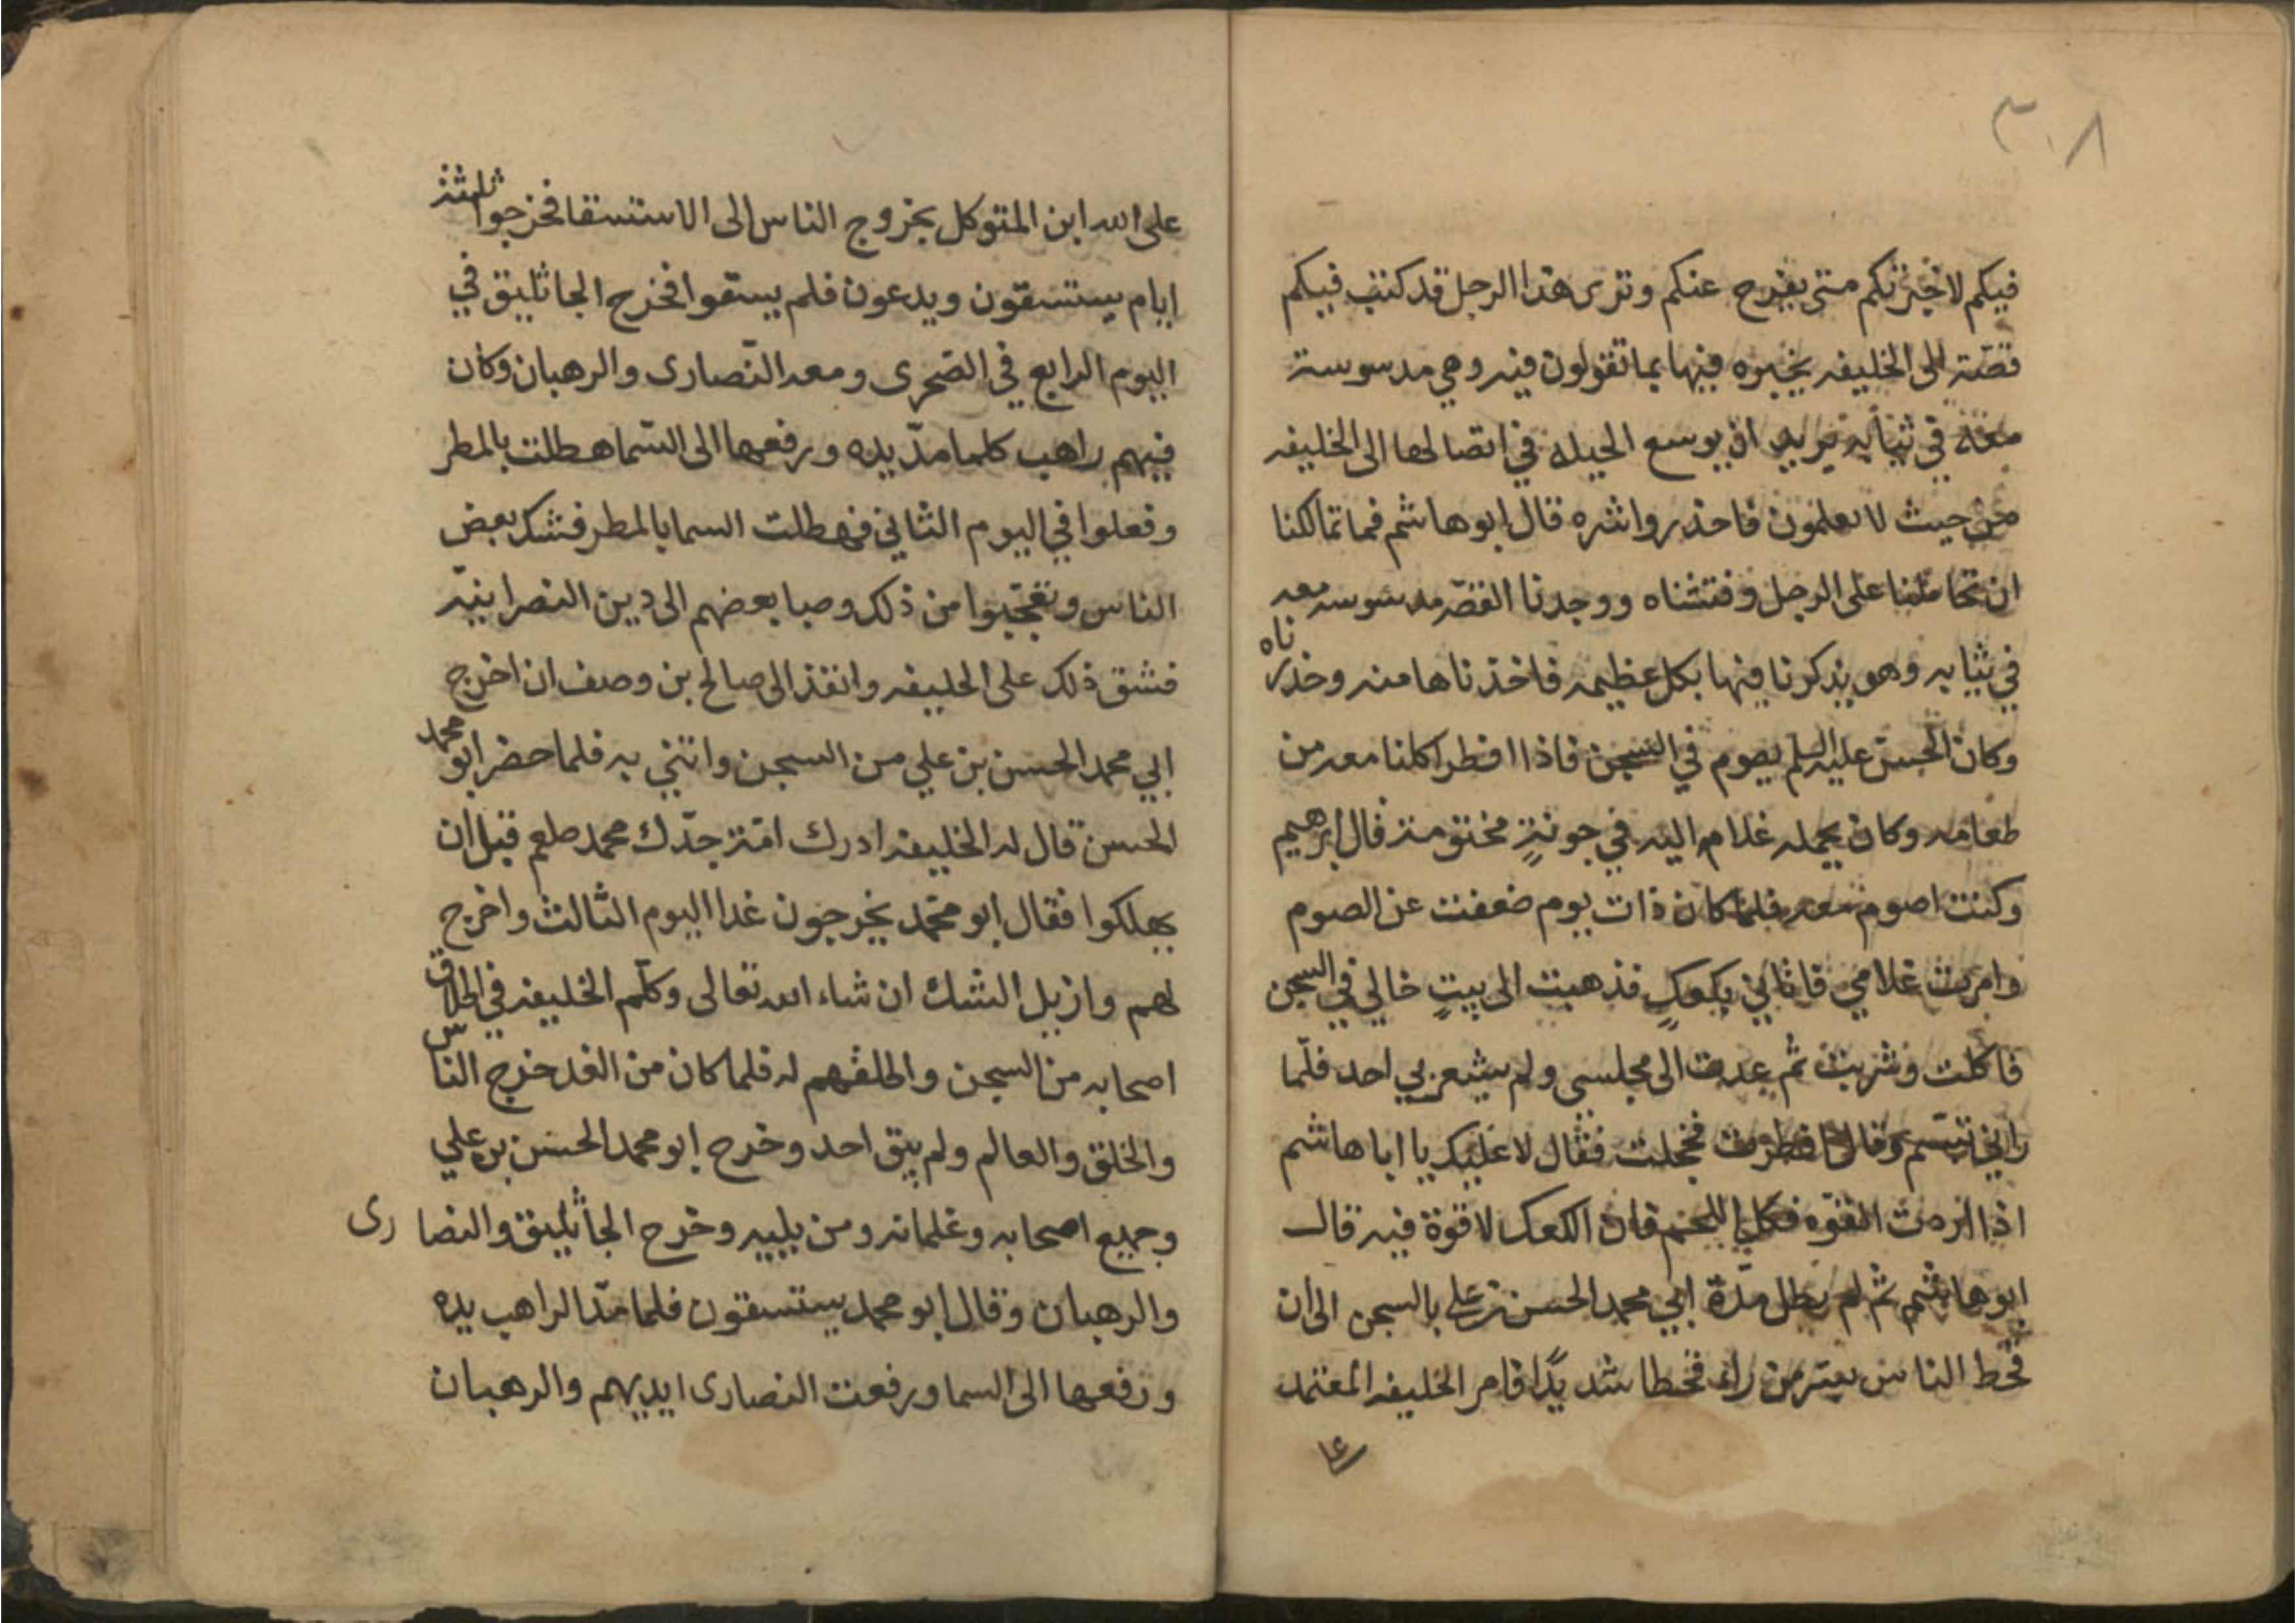 ٣٠٨
فيكم لاخبرتكم متى يفرج عنكم وترى هذا الرجل قد كتب فيكم
قصّة الى الخليفه يخبره فيها بما تقولون فيه وهي مدسوسة
معه في ثيابه يريد ان يوسع الحيله في اتصالها الى الخليفه
من حيث لا تعلمون فاحذروا شره قال ابو هاشم فما تمالكنا
ان تحاملنا على الرجل وفتشناه ووجدنا القصّه مدسوسه معه
في ثيابه وهو يذكرنا فيها بكل عظيمه فاخذناها منه وحذرناه
وكان الحسن عليه السلم يصوم في السجن فاذا افطر اكلنا معه من
طعامه وكان يحمله غلام اليه في جونةٍ مختومة قال ابرهيم
وكنت اصوم معه فلما كان ذات يوم ضعفت عن الصوم
وامرت غلامي فاتاني بكعكٍ فذهبت الى بيتٍ خالي في السجن
فاكلت وشربت ثم عدت الى مجلسي ولم يشعر بي احد فلّما
راني تبسّم وقال افطرت فخجلت فقال لا عليك يا ابا هاشم
اذا اردت القوه فكل اللحم فان الكعك لا قوة فيه قال
ابو هاشم ثم لم تطل مدّة ابي محمد الحسن بن علي بالسجن الى ان
قحط الناس بسّر من راء قحطا شديدًا فامر الخليفه المعتمد
على الله ابن المتوكل بخروج الناس الى الاستسقا فخرجوا ثلثة
ايام يستسقون ويدعون فلم يسقوا فخرج الجاثليق في
اليوم الرابع في الصّحرى ومعه النّصارى والرهبان وكان
فيهم راهب كلما مدّ يده ورفعها الى السّما هطلت بالمطر
وفعلوا في اليوم الثاني فهطلت السما بالمطر فشك بعض
الناس وتعجّبوا من ذلك وصبا بعضهم الى دين النصرانيّه
فشق ذلك على الخليفه وانفذ الى صالح بن وصف ان اخرج
ابي محمد الحسن بن علي من السجن وائتني به فلما حضر ابو محمد
الحسن قال له الخليفه ادرك امّة جدّك محمد صلعم قبل ان
يهلكوا فقال ابو محمّد يخرجون غدا اليوم الثالث واخرج
لهم وازيل الشك ان شاء الله تعالى وكلّم الخليفه في اطلاق
اصحابه من السجن واطلقهم له فلما كان من الغد خرج الناس
والخلق والعالم ولم يبق احد وخرج ابو محمد الحسن بن علي
وجميع اصحابه وغلمانه ومن يليه وخرج الجاثليق والنصارى
والرهبان وقال ابو محمد يستسقون فلما مدّ الراهب يده
ورفعها الى السما ورفعت النصارى ايديهم والرهبان